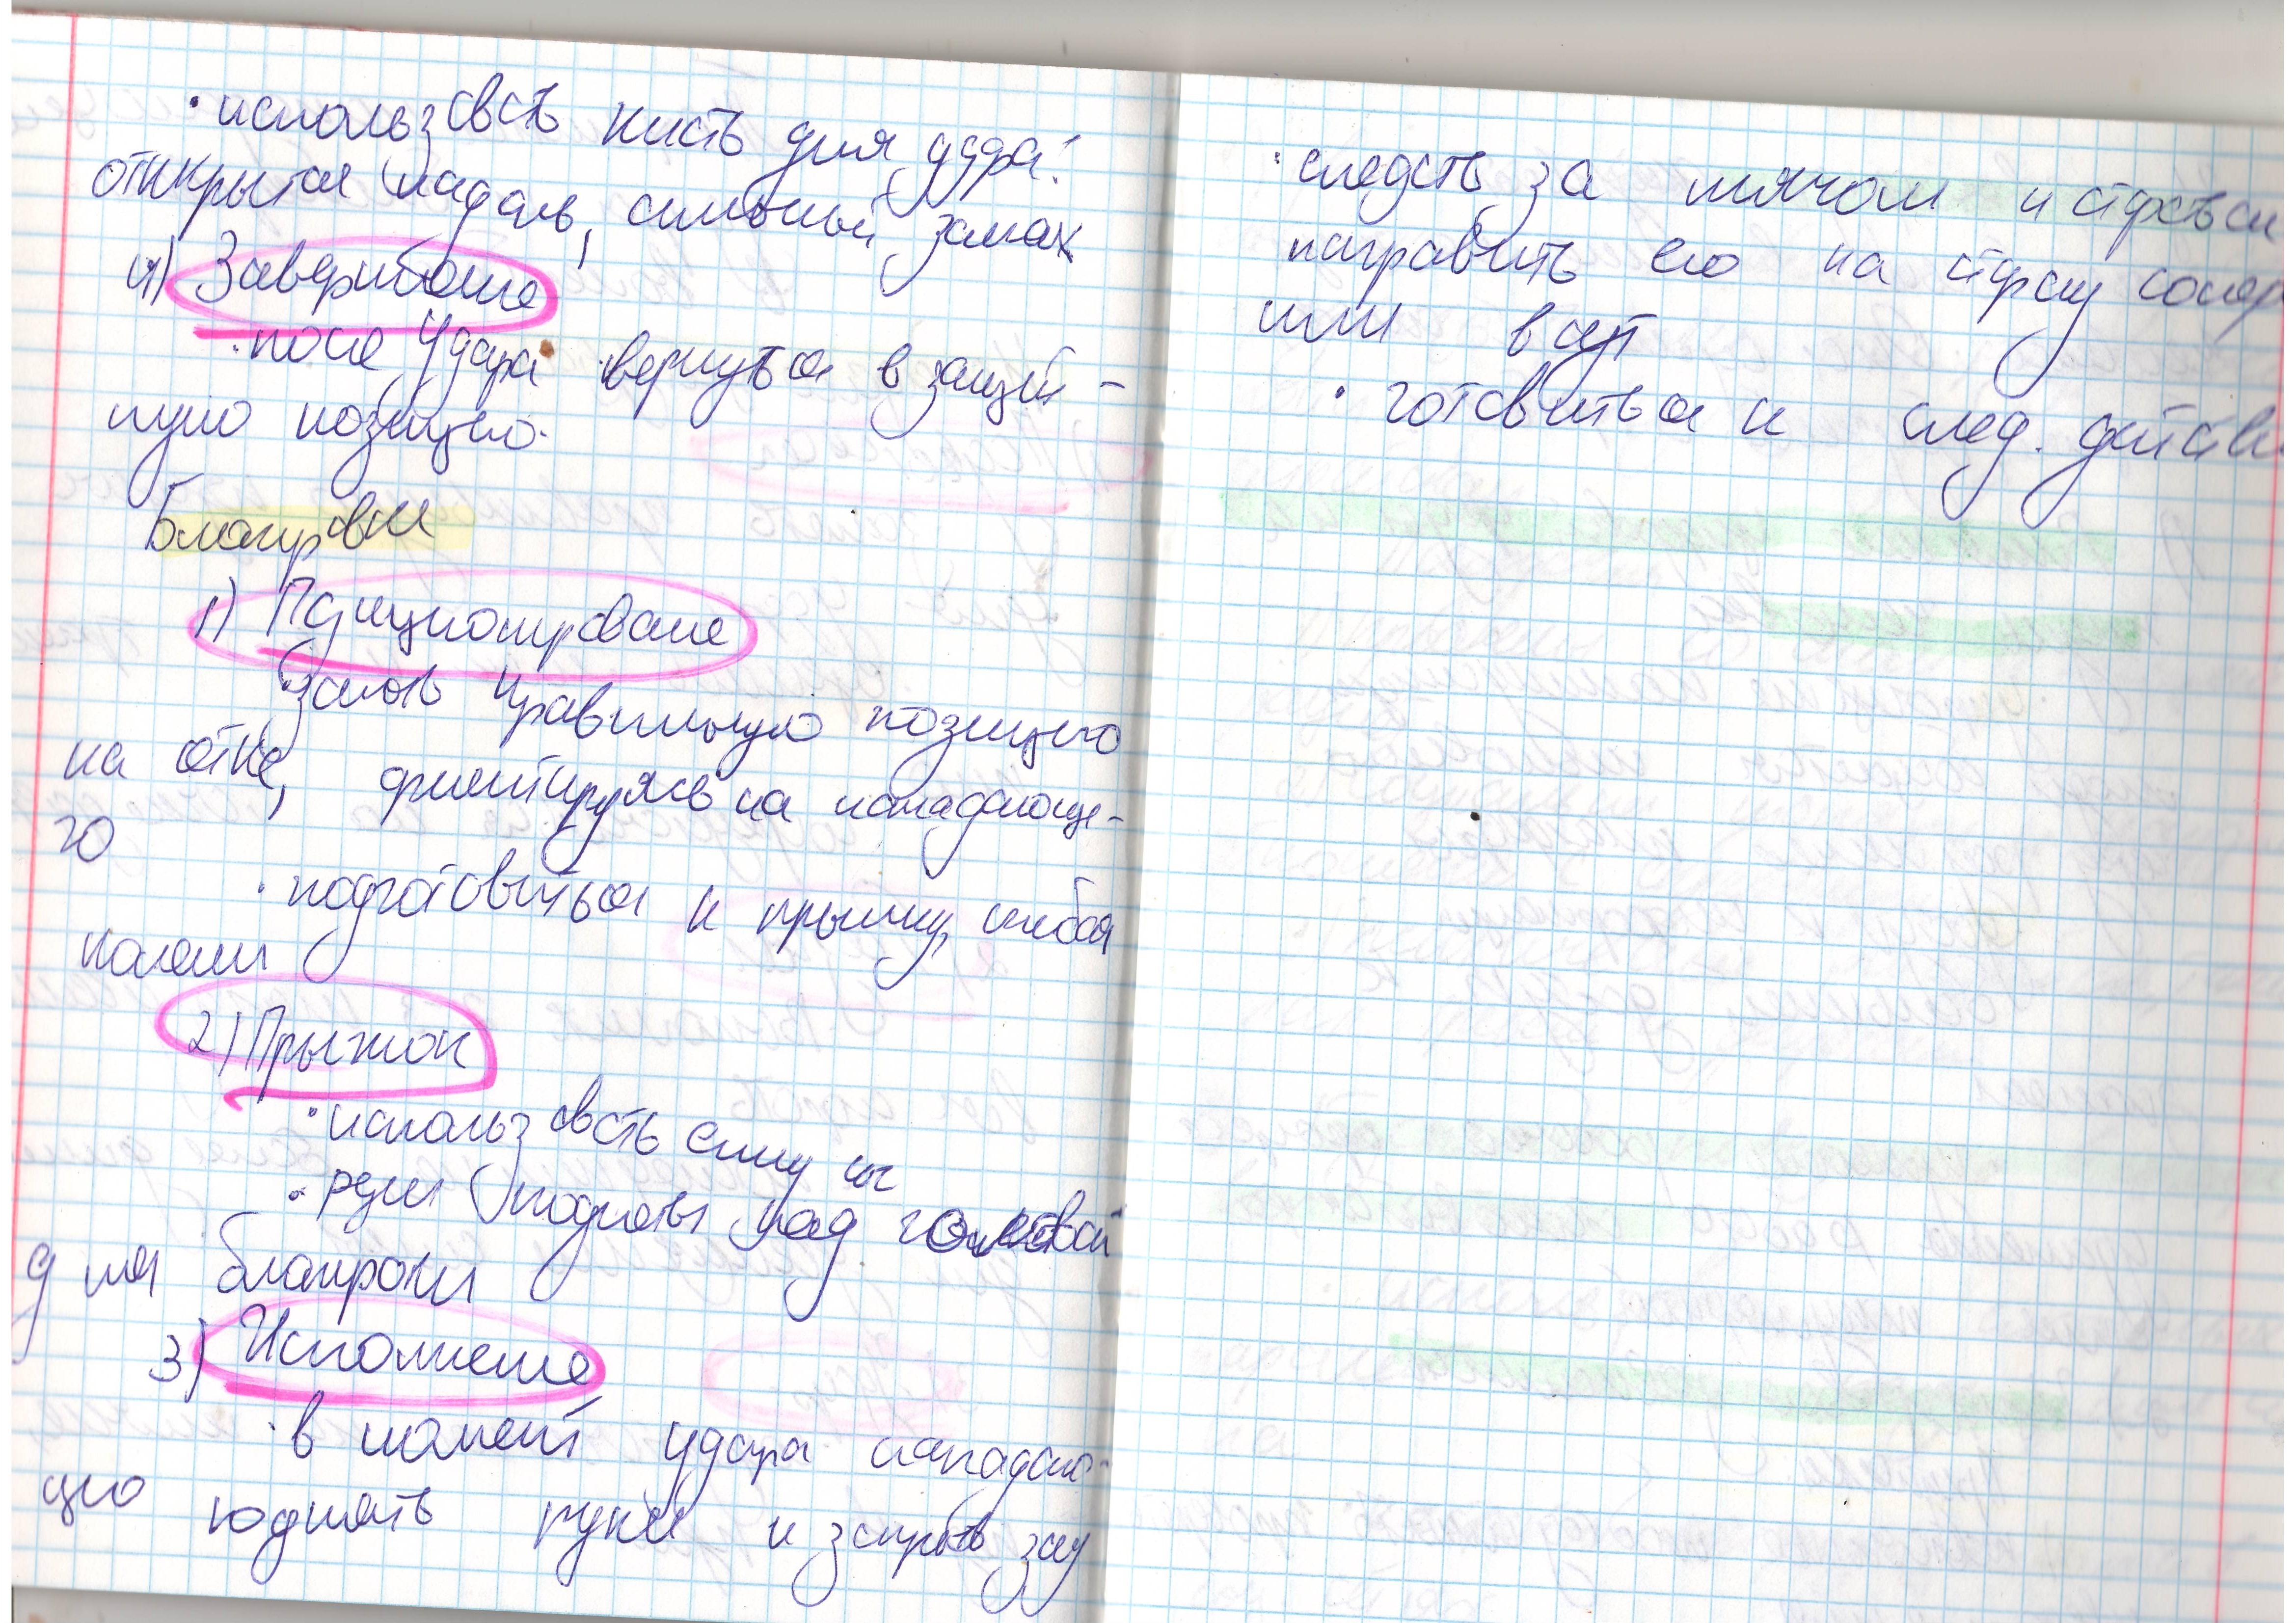 • использовать кисть для удара:
открытая ладонь, сильный замах
4) Завершение
• после удара вернуться в защит-
ную позицию.
Блокировки
1) Позиционирование
• занять правильную позицию
на сетке, ориентируясь на нападающе-
го
• подготовиться к прыжку, сгибая
колени
2) Прыжок
• использовать силу ног
• руки поднять над головой
для блокировки
3) Исполнение
• в момент удара нападаю-
щего поднять руки и закрыть зону
• следить за мячом и стараться
направить его на сторону сопер
или в аут
• готовиться к след. действ